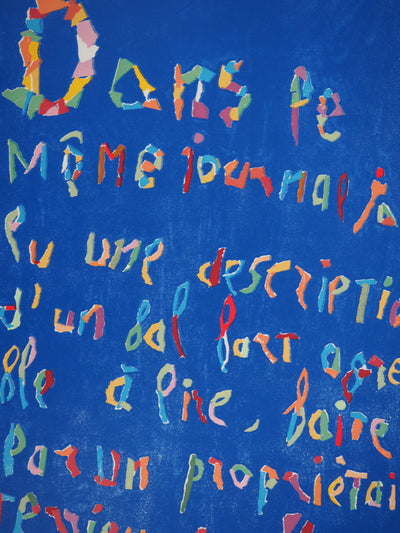 Dans le
même journal, j'a
lu une descriptio
d'un bal fort agré
ble à lire, faite
par un propriétai